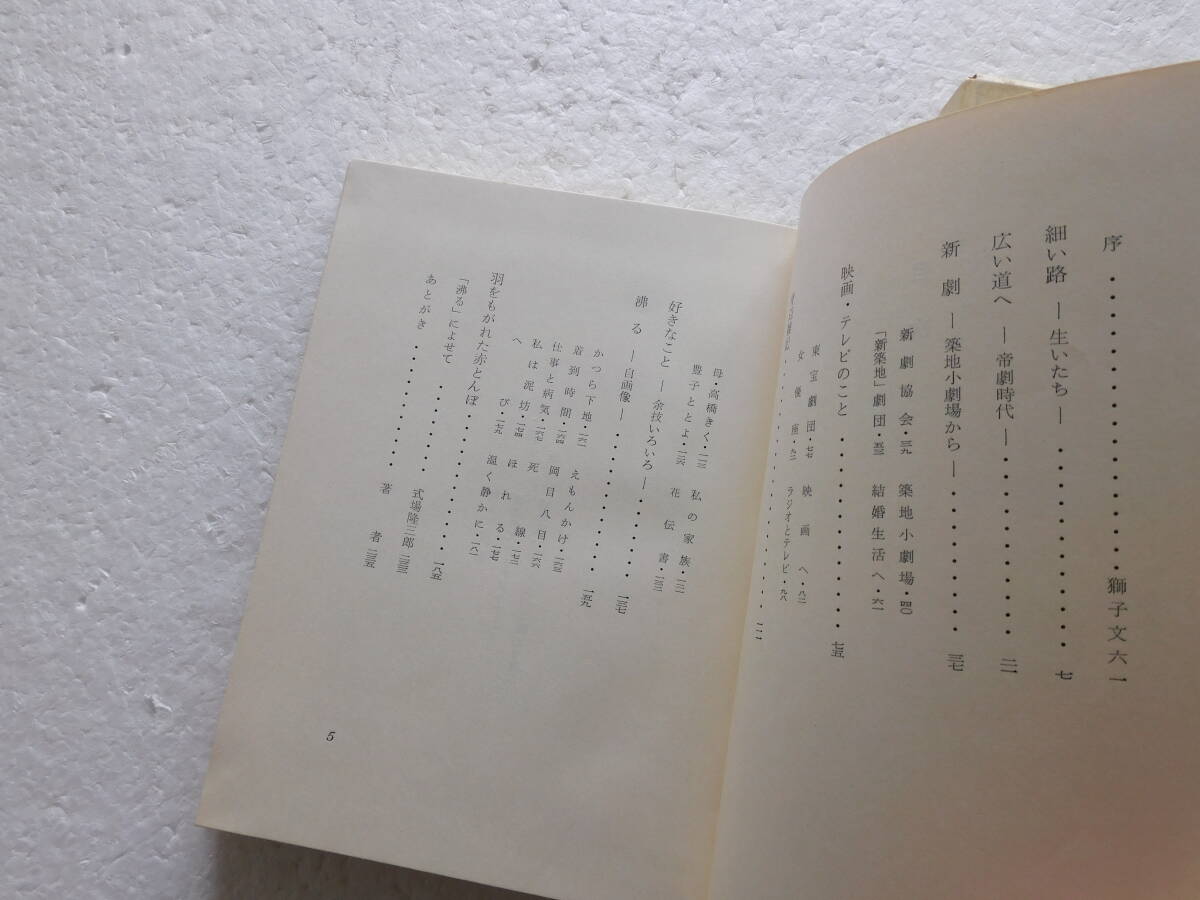 序・・・・・・・・・・・・・・・・・・獅子文六 一
細い路 ―生いたち―・・・・・・・・・・七
広い道へ ―帝劇時代―・・・・・・・・・・二一
新劇 ―築地小劇場から―・・・・・・・・三七
新劇協会・三九 築地小劇場・四〇
「新築地」劇団・五三 結婚生活へ・六一
映画・テレビのこと・・・・・・・・・・七五
東宝劇団・七七 映画へ・八二
女優座・九二 ラジオとテレビ・九八
・・・・・・・・・・・・・・
母・高橋きく・一一三 私の家族・一二一
豊子ととよ・一二六 花伝書・一三三
好きなこと ―余技いろいろ―・・・・・・・一三七
沸る ―自画像―・・・・・・・・・・一五九
かつら下地・一六一 えもんかけ・一六三
着到時間・一六四 岡目八目・一六六
仕事と病気・一六七 死線・一七二
私は泥坊・一七四 ほれる・一七七
へび・一七九 温く静かに・一八一
羽をもがれた赤とんぼ・・・・・・・・・・一八五
「沸る」によせて・・・・・・・・式場隆三郎 二三三
あとがき・・・・・・・・・・著者 二三五
5